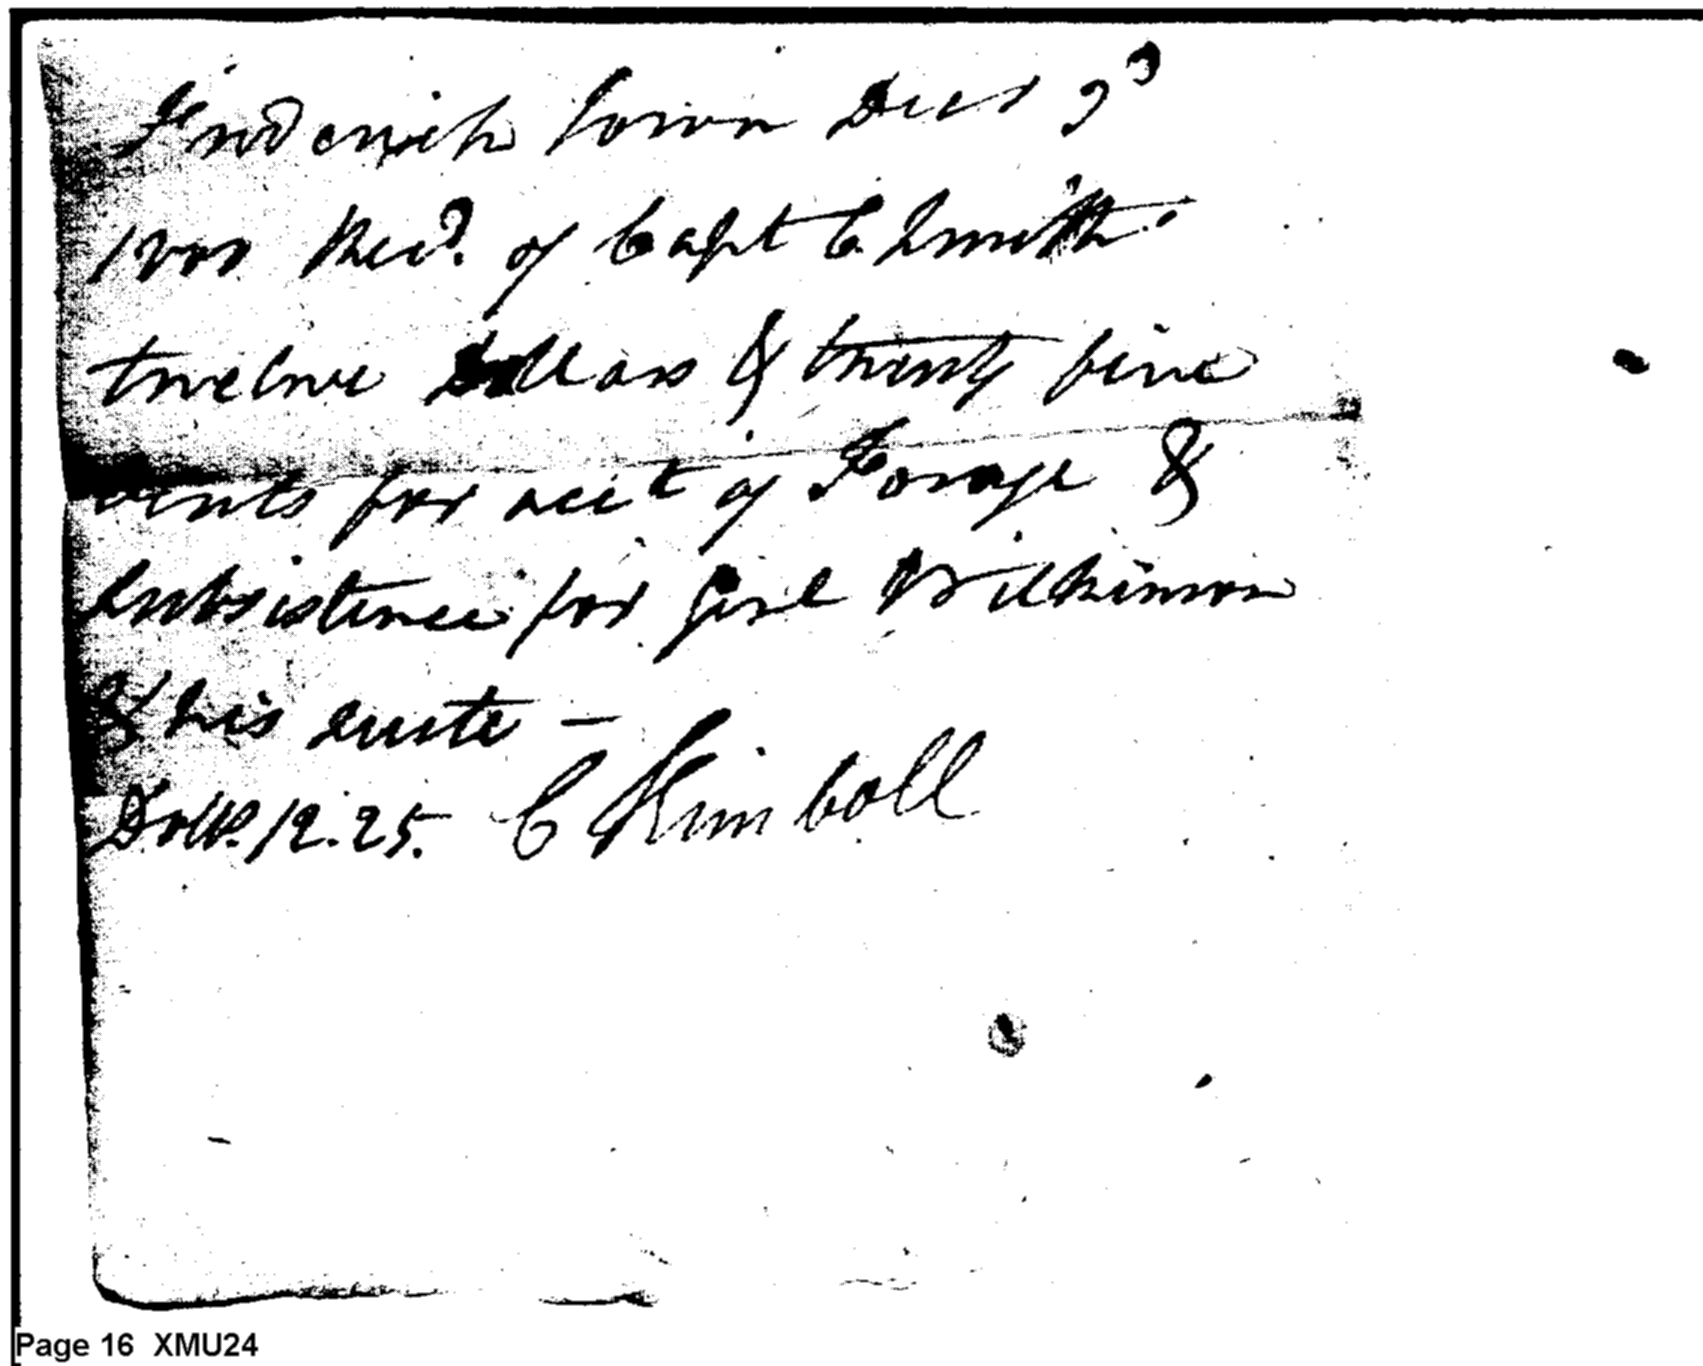 Frederick Town Decr 3d
Recd. of Capt C Smith
twelve Dollars & twenty five
cents for acct of Forage &
Subsistence for Genl Wilkinson
& his suite –
Dolls. 12.25. C Kimball
Page 16 XMU24